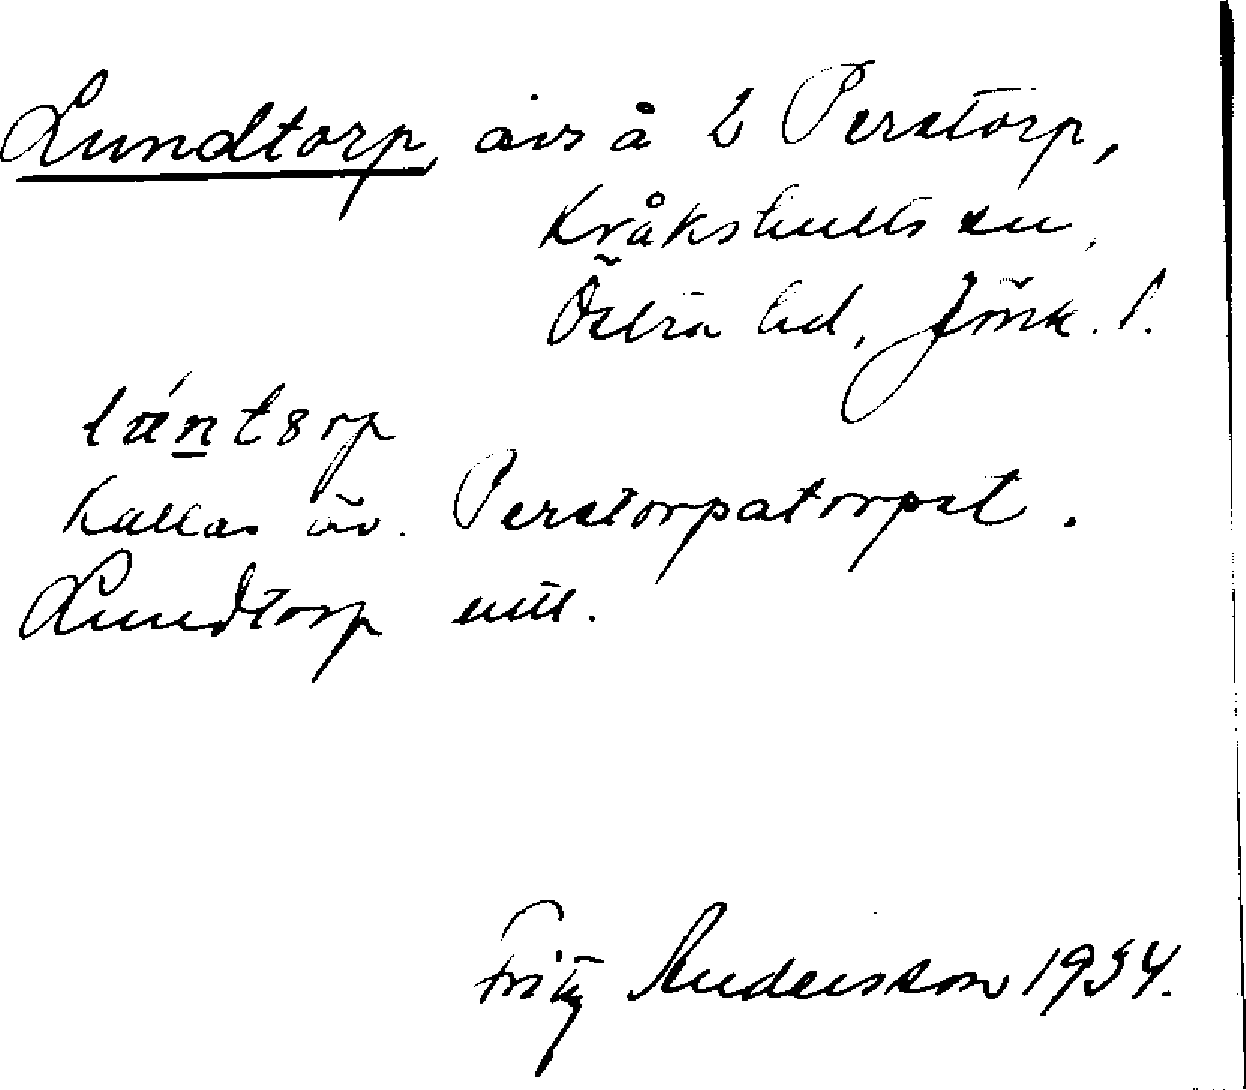 Lundtorp, avs å 2 Perstorp,
Kråkshults sn,
Östra hd, Jönk. l.
Kallas äv. Perstorpatorpet.
Lundtorp
Fritz Andersson 1934.